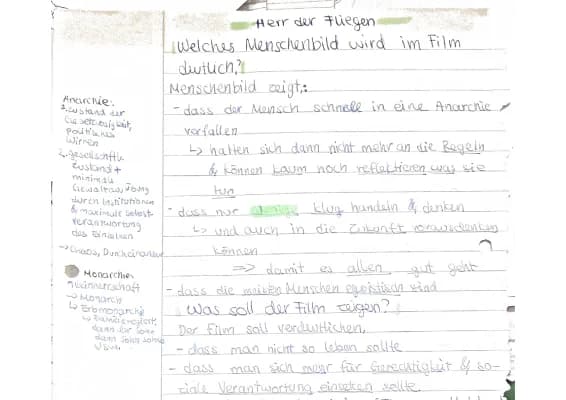 Herr der Fliegen
Welches Menschenbild wird im Film
dutlich?
Menschenbild zeigt:
- dass der Mensch schnell in eine Anarchie
verfallen
↳ halten sich dann nicht mehr an die Regeln
& können kaum noch reflektieren was sie
tun
- dass nur wenige klug handeln & denken
↳ und auch in die Zukunft vorausdenken
können
⇒ damit es allen gut geht
- dass die meisten Menschen egoistisch sind
Was soll der Film zeigen?
Der Film soll verdeutlichen,
- dass man nicht so leben sollte
- dass man sich mehr für Gerechtigkeit & so-
ziale Verantwortung einsetzen sollte
Anarchie:
1. Zustand der
Gesetzlosigkeit,
politische
Wirren
2. gesellschaftl.
Zustand +
minimale
Gewaltausübung
durch Institutionen
& maximale Selbst-
verantwortung
des Einzelnen
→ Chaos, Durcheinander
Monarchie:
↳ Monarch
↳ Erbmonarchie
dann der Sohn
dann